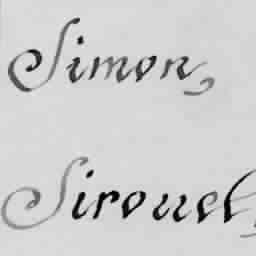 Simon,
Sirouel,